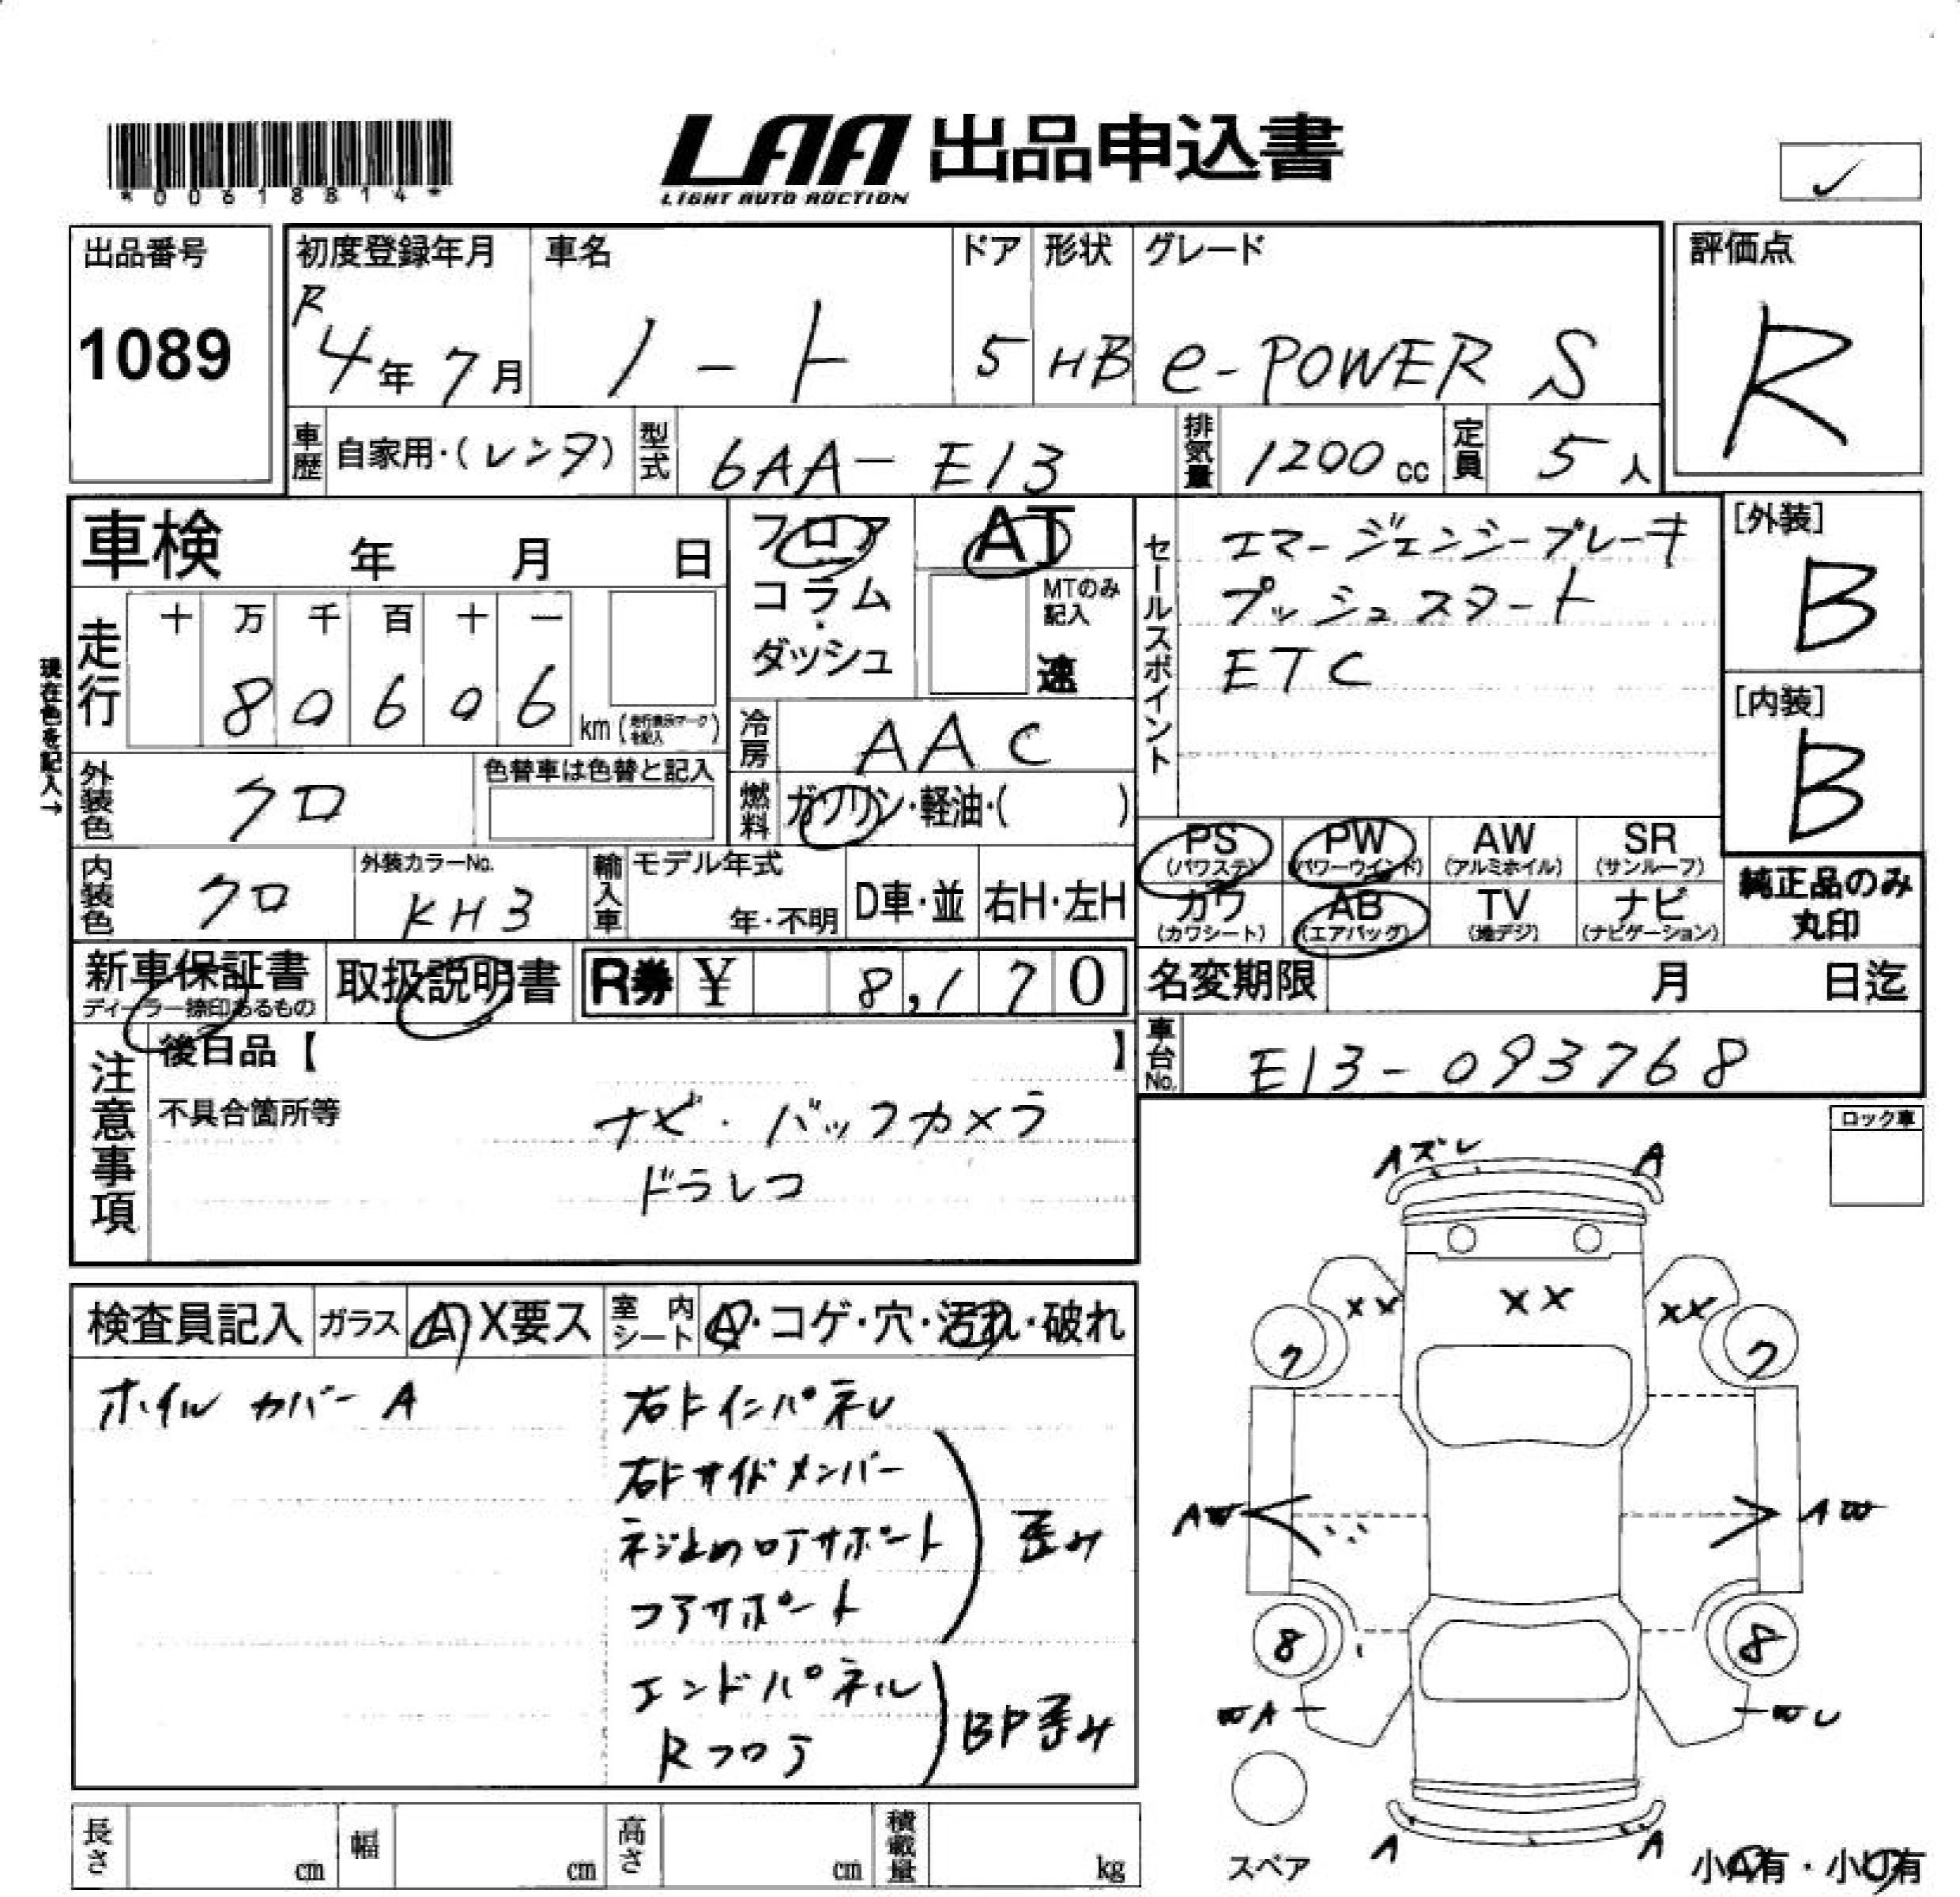 *00618814*
LAA 出品申込書
LIGHT AUTO AUCTION
✓
出品番号
1089
初度登録年月
R4年7月
車名
ノート
ドア
5
形状
HB
グレード
e-POWER S
評価点
R
車歴
自家用・(レンタ)
型式
6AA-E13
排気量
1200cc
定員
5人
車検 年 月 日
フロア
コラム
ダッシュ
AT
MTのみ記入
速
走行
十 万 千 百 十 一
8 0 6 0 6
km(走行表示マークを記入)
現在色を記入→
冷房
AAC
燃料
ガソリン・軽油・( )
外装色
クロ
色替車は色替と記入
内装色
クロ
外装カラーNo.
KH3
輸入車
モデル年式
年・不明
D車・並
右H・左H
セールスポイント
エマージェンシーブレーキ
プッシュスタート
ETC
[外装]
B
[内装]
B
PS
(パワステ)
PW
(パワーウインド)
AW
(アルミホイル)
SR
(サンルーフ)
カワ
(カワシート)
AB
(エアバッグ)
TV
(地デジ)
ナビ
(ナビゲーション)
純正品のみ
丸印
新車保証書
ディーラー捺印あるもの
取扱説明書
R券 ¥ 8,170
名変期限 月 日迄
車台No.
E13-093768
注意事項
後日品【 】
不具合箇所等
ナビ・バックカメラ
ドラレコ
ロック車
検査員記入
ガラス
A X要ス
室内シート
A・コゲ・穴・汚れ・破れ
ホイルカバーA
右Fインパネル
右Fサイドメンバー
ネジ止めロアサポート
コアサポート
歪み
エンドパネル
Rフロア
BP歪み
Aズレ
A
XX
XX
XX
7
7
AW
AW
8
8
WA
WU
A
A
スペア
小A有・小U有
長さ cm
幅 cm
高さ cm
積載量 kg